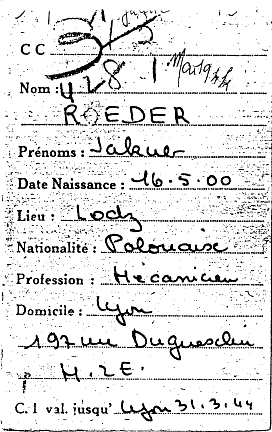 C C
428 1 Mai 1944
Nom :
ROEDER
Prénoms : Jakub
Date Naissance : 16.5.00
Lieu : Lodz
Nationalité : Polonaise
Profession : Mécanicien
Domicile : Lyon
192 rue Duguesclin
C. I val. jusqu' Lyon 31.3.44